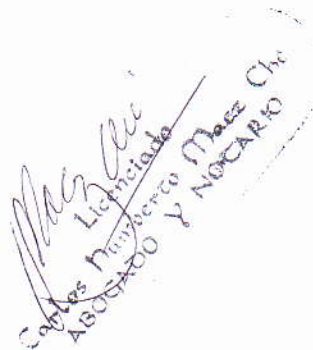 Licenciado
Carlos Humberto Maez
ABOGADO Y NOTARIO